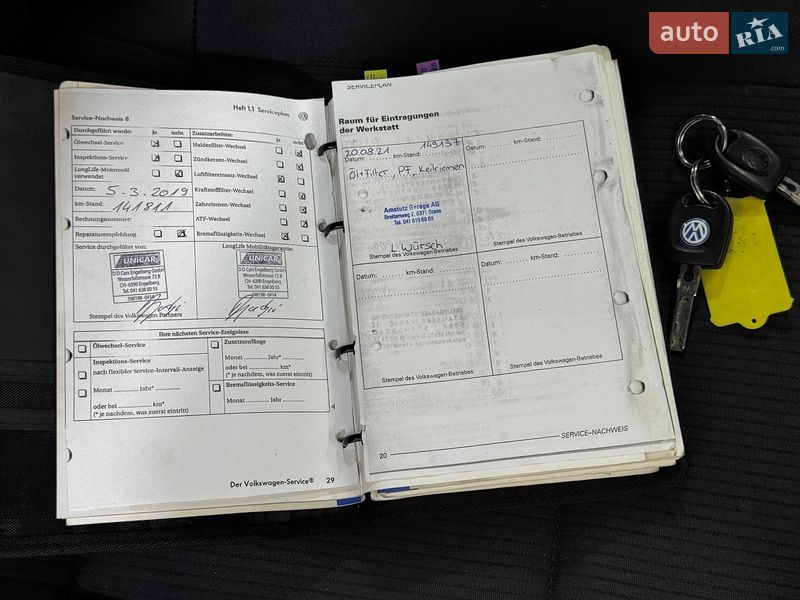 auto RIA
.com
Heft 1.1 Serviceplan
Service-Nachweis 8
Durchgeführt wurde: ja nein
Ölwechsel-Service
Inspektions-Service
LongLife-Motorenöl
verwendet
Datum: 5.3.2019
km-Stand: 141811
Rechnungsnummer:
Reparaturempfehlung
Zusatzarbeiten: ja nein
Haldexfilter-Wechsel
Zündkerzen-Wechsel
Luftfiltereinsatz-Wechsel
Kraftstofffilter-Wechsel
Zahnriemen-Wechsel
ATF-Wechsel
Bremsflüssigkeits-Wechsel
Service durchgeführt von:
UNICAR
D D Cars Engelberg GmbH
Wasserfallstrasse 72 B
CH-6390 Engelberg
Tel. 041 638 00 55
398198-0414
Stempel des Volkswagen Partners
LongLife Mobilitätsgarantie:
UNICAR
D D Cars Engelberg GmbH
Wasserfallstrasse 72 B
CH-6390 Engelberg
Tel. 041 638 00 55
398198-0414
Ihre nächsten Service-Ereignisse
Ölwechsel-Service
Inspektions-Service
nach flexibler Service-Intervall-Anzeige
Monat Jahr*
oder bei km*
(* je nachdem, was zuerst eintritt)
Zusatzumfänge
Monat Jahr*
oder bei km*
(* je nachdem, was zuerst eintritt)
Bremsflüssigkeits-Service
Monat Jahr
Der Volkswagen-Service® 29
SERVICEPLAN
Raum für Eintragungen
der Werkstatt
20.08.21 149137
Datum: km-Stand:
Öl+Filter, PF, Keilriemen
Amstutz Garage AG
Breitenweg 2, 6371 Stans
Tel. 041 610 69 69
L. Würsch
Stempel des Volkswagen-Betriebes
Datum: km-Stand:
Stempel des Volkswagen-Betriebes
Datum: km-Stand:
Stempel des Volkswagen-Betriebes
Datum: km-Stand:
Stempel des Volkswagen-Betriebes
20
SERVICE–NACHWEIS